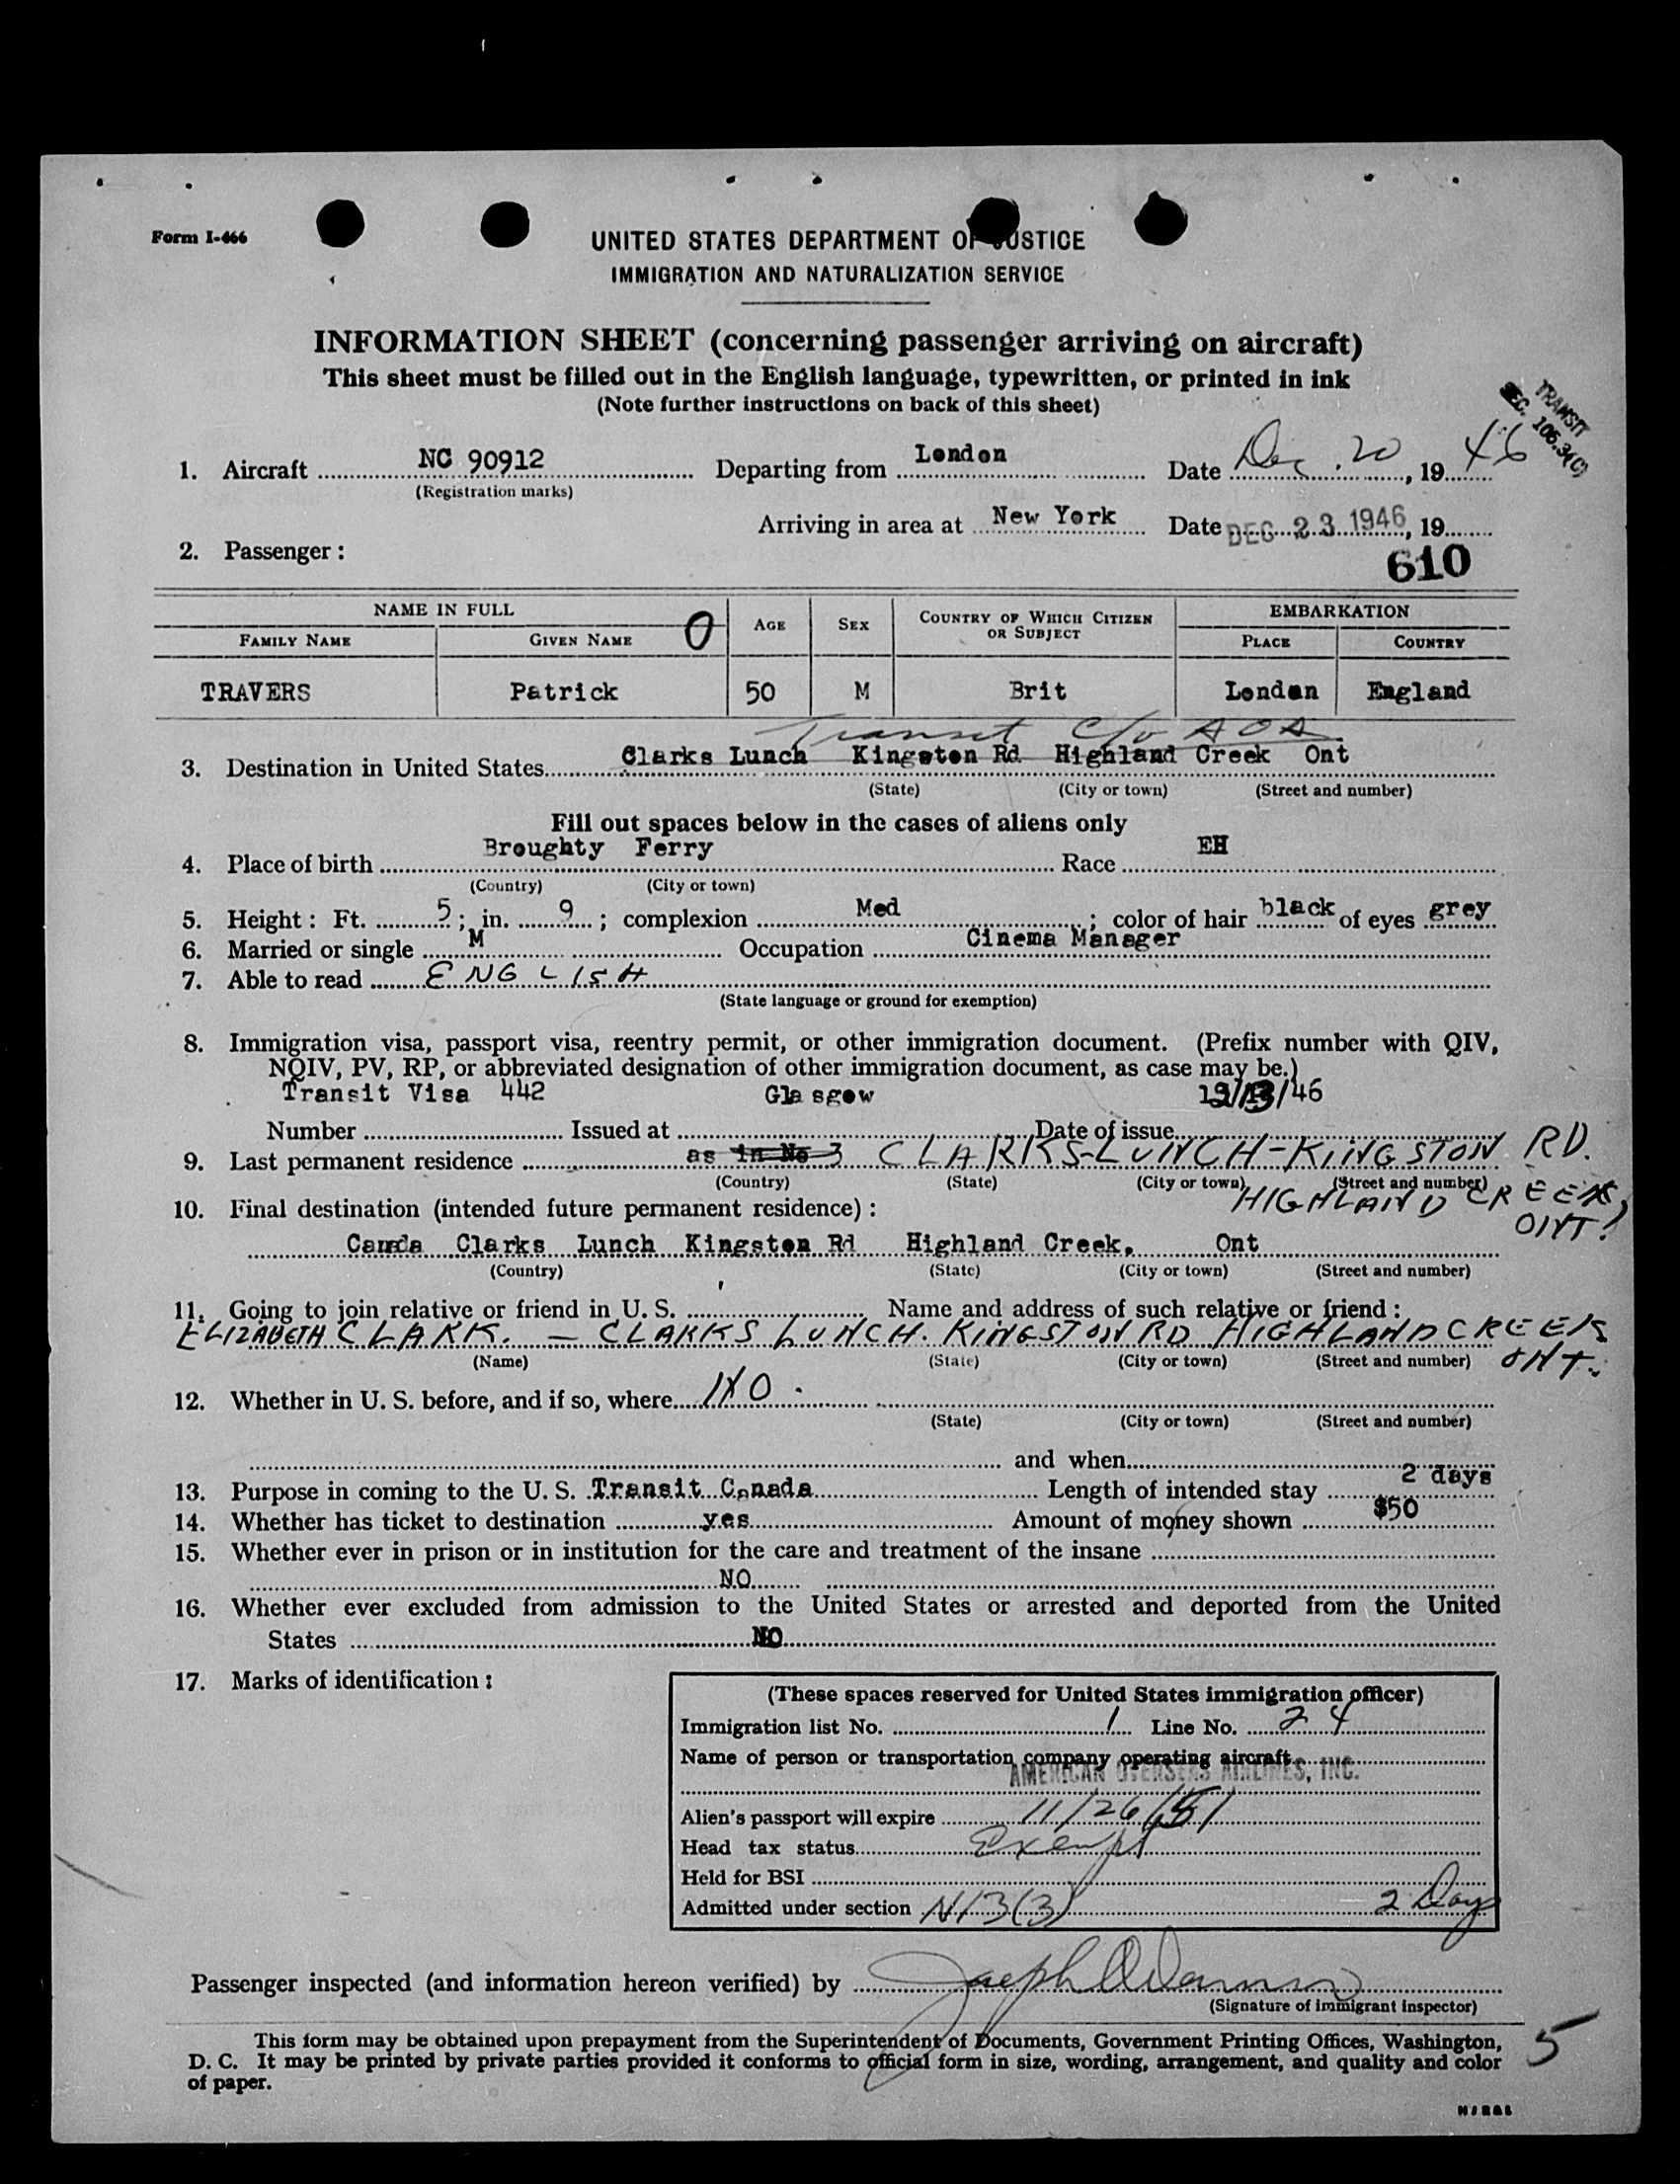 Form I-466
UNITED STATES DEPARTMENT OF JUSTICE
IMMIGRATION AND NATURALIZATION SERVICE
INFORMATION SHEET (concerning passenger arriving on aircraft)
This sheet must be filled out in the English language, typewritten, or printed in ink
(Note further instructions on back of this sheet)
TRANSIT
SEC. 106.3(C)
1. Aircraft NC 90912 Departing from London Date Dec. 20, 1946
(Registration marks)
Arriving in area at New York Date DEC 23 1946, 19
2. Passenger:
610
NAME IN FULL O AGE SEX COUNTRY OF WHICH CITIZEN OR SUBJECT EMBARKATION
FAMILY NAME GIVEN NAME PLACE COUNTRY
TRAVERS Patrick 50 M Brit London England
Transit C/o AOA
3. Destination in United States Clarks Lunch Kingston Rd Highland Creek Ont
(State) (City or town) (Street and number)
Fill out spaces below in the cases of aliens only
4. Place of birth Broughty Ferry Race EH
(Country) (City or town)
5. Height: Ft. 5; in. 9; complexion Med; color of hair black of eyes grey
6. Married or single M Occupation Cinema Manager
7. Able to read ENGLISH
(State language or ground for exemption)
8. Immigration visa, passport visa, reentry permit, or other immigration document. (Prefix number with QIV,
NQIV, PV, RP, or abbreviated designation of other immigration document, as case may be.)
Transit Visa 442 Glasgow /46
Number Issued at Date of issue
9. Last permanent residence as in No 3 CLARKS-LUNCH-KINGSTON RD.
(Country) (State) (City or town) (Street and number)
HIGHLAND CREEK,
ONT.
10. Final destination (intended future permanent residence):
Canada Clarks Lunch Kingston Rd Highland Creek, Ont
(Country) (State) (City or town) (Street and number)
11. Going to join relative or friend in U. S. Name and address of such relative or friend:
ELIZABETH CLARK. — CLARKS LUNCH. KINGSTON RD HIGHLAND CREEK
ONT.
(Name) (State) (City or town) (Street and number)
12. Whether in U. S. before, and if so, where NO.
(State) (City or town) (Street and number)
and when
13. Purpose in coming to the U. S. Transit Canada Length of intended stay 2 days
14. Whether has ticket to destination yes Amount of money shown $50
15. Whether ever in prison or in institution for the care and treatment of the insane
NO
16. Whether ever excluded from admission to the United States or arrested and deported from the United
States NO
17. Marks of identification:
(These spaces reserved for United States immigration officer)
Immigration list No. 1 Line No. 24
Name of person or transportation company operating aircraft
AMERICAN OVERSEAS AIRLINES, INC.
Alien's passport will expire 11/26/51
Head tax status Exempt
Held for BSI
Admitted under section N/3(3) 2 Days
Passenger inspected (and information hereon verified) by Joseph
(Signature of immigrant inspector)
This form may be obtained upon prepayment from the Superintendent of Documents, Government Printing Offices, Washington,
D. C. It may be printed by private parties provided it conforms to official form in size, wording, arrangement, and quality and color
of paper.
5